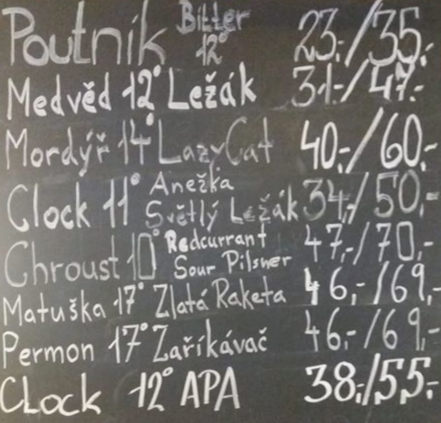 Poutník Bitter 12° 23,-/35,-
Medvěd 12° Ležák 31,-/47,-
Mordýř 14° LazyCat 40,-/60,-
Clock 11° Anežka Světlý Ležák 34,-/50,-
Chroust 10° Redcurrant Sour Pilsner 47,-/70,-
Matuška 17° Zlatá Raketa 46,-/69,-
Permon 17° Zaříkávač 46,-/69,-
CLock 12° APA 38,-/55,-